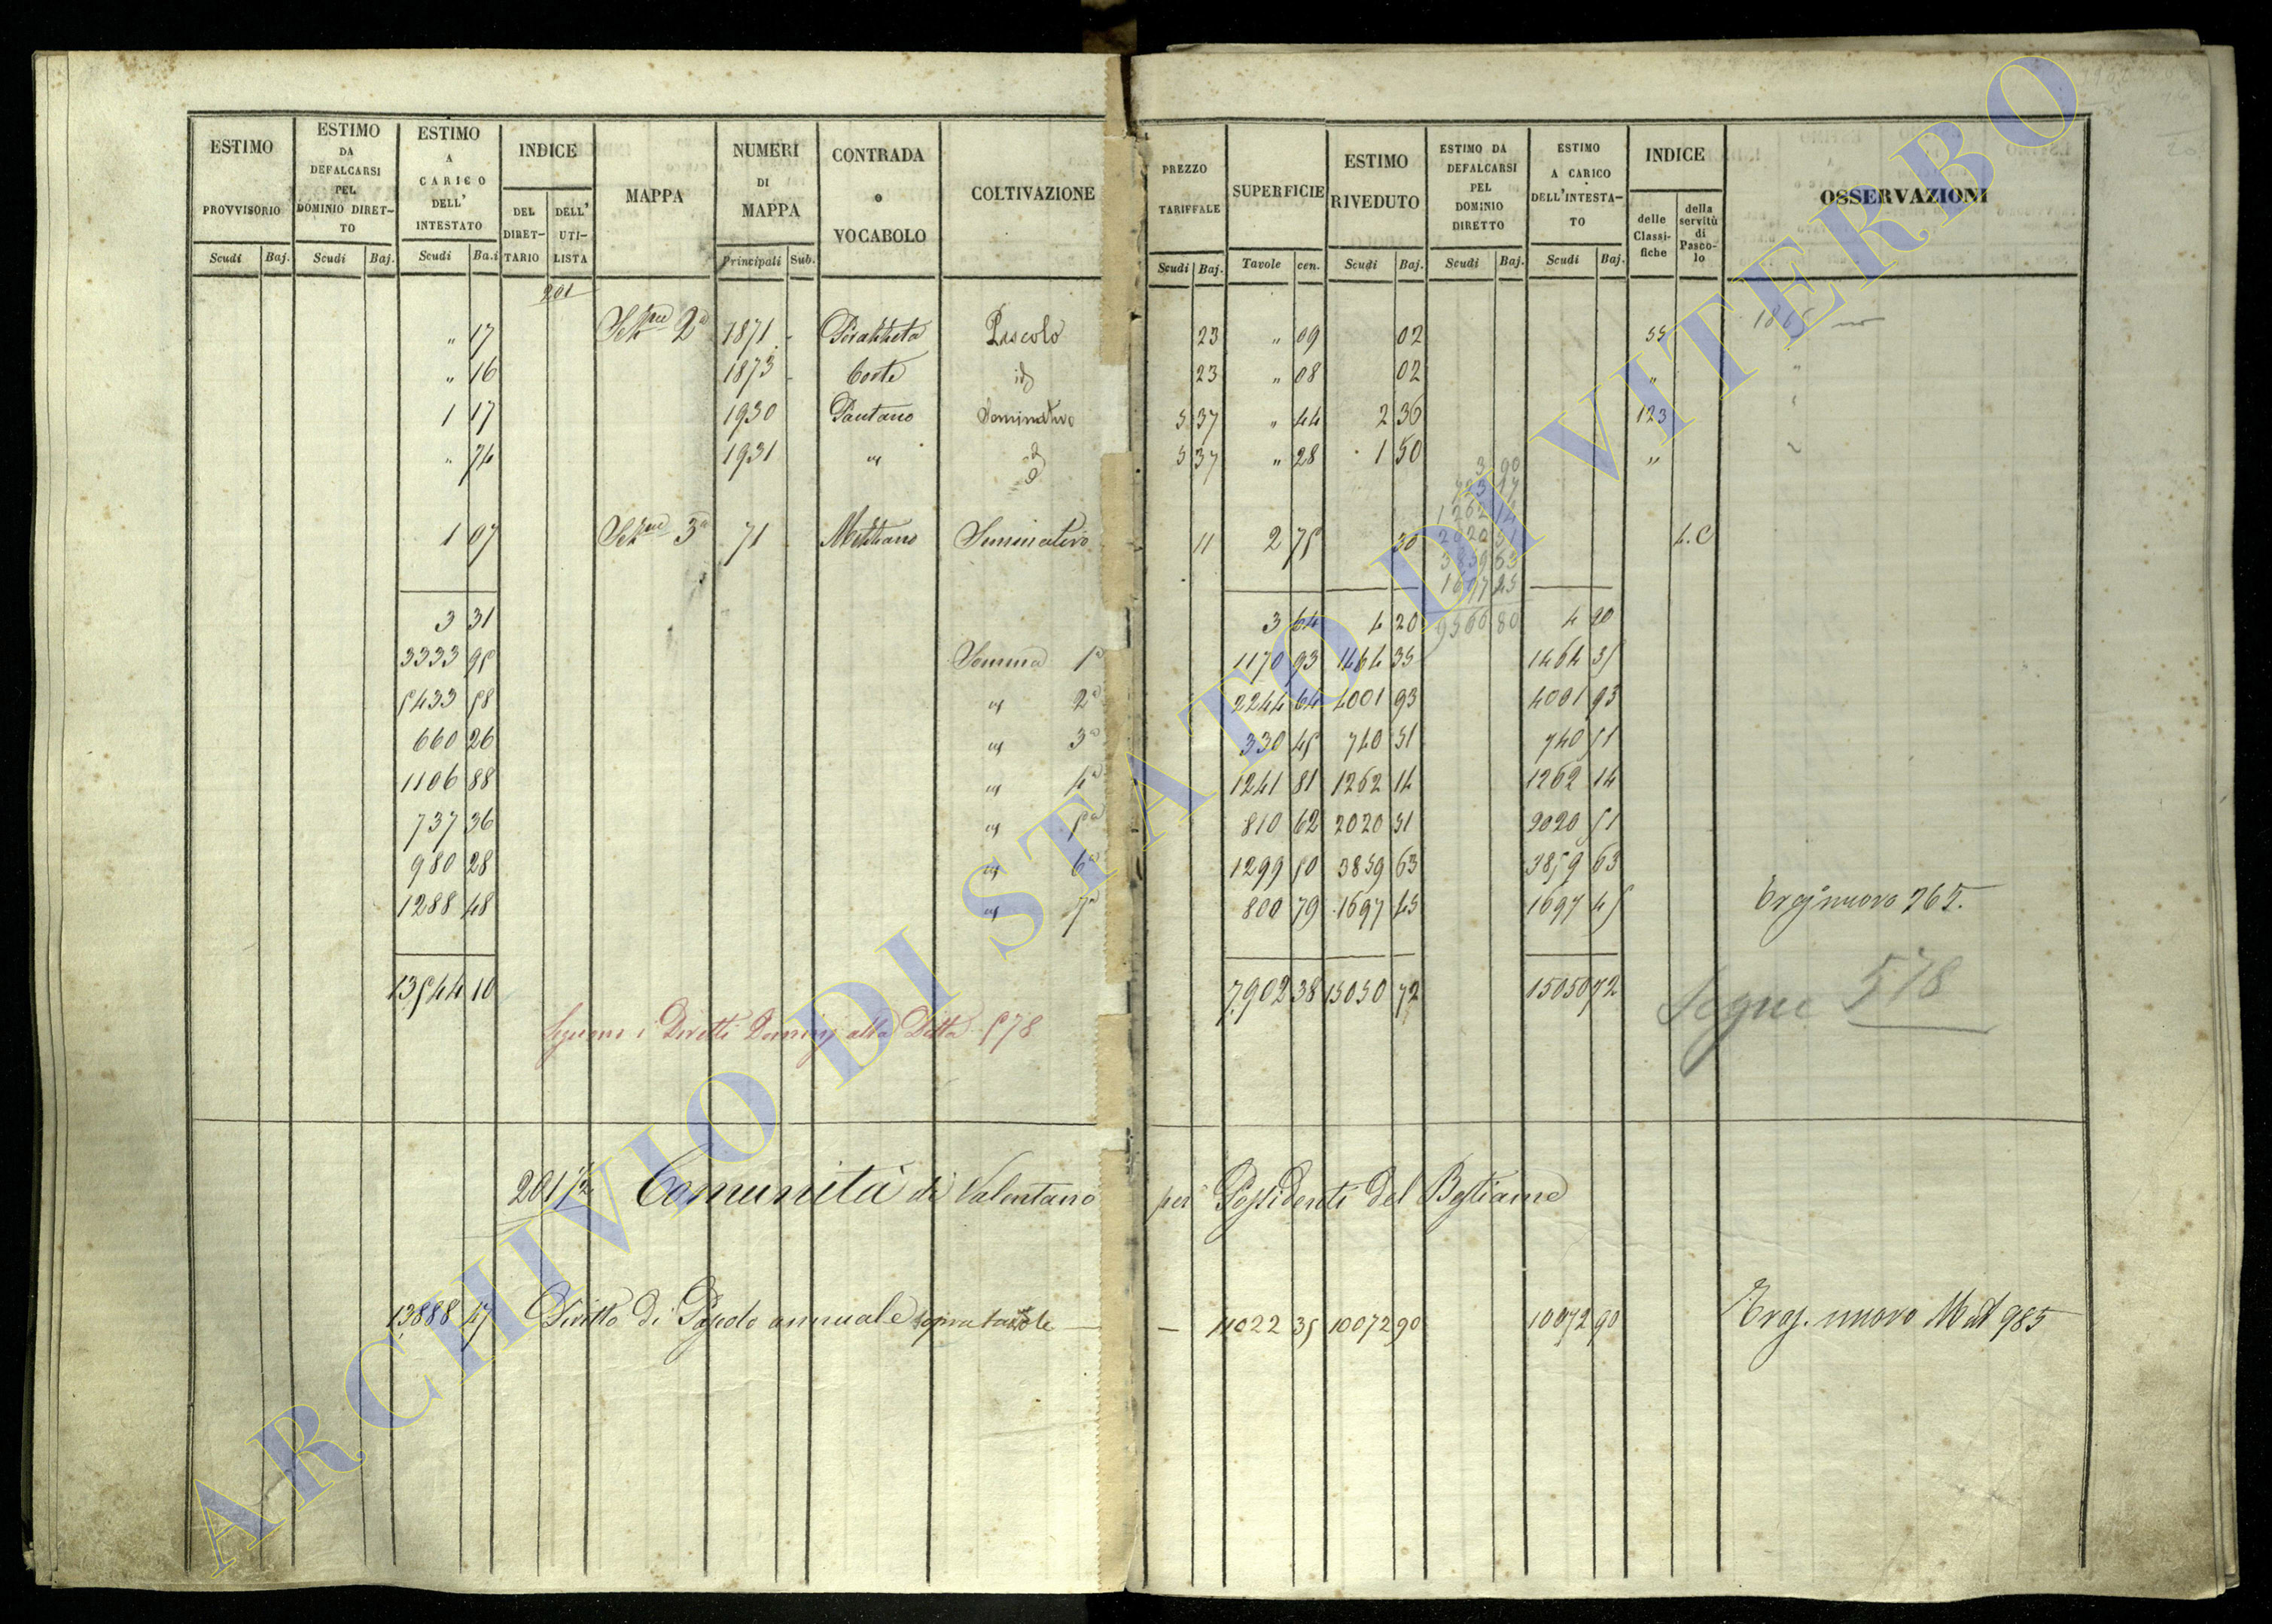 ESTIMO PROVVISORIO
ESTIMO DA DEFALCARSI PEL DOMINIO DIRETTO
ESTIMO A CARICO DELL' INTESTATO
INDICE
DEL DIRETTARIO
DELL' UTILISTA
MAPPA
NUMERI DI MAPPA
CONTRADA o VOCABOLO
COLTIVAZIONE
PREZZO TARIFFALE
SUPERFICIE
ESTIMO RIVEDUTO
ESTIMO DA DEFALCARSI PEL DOMINIO DIRETTO
ESTIMO A CARICO DELL'INTESTATO
INDICE
delle Classifiche
della servitù di Pascolo
OSSERVAZIONI
Scudi Baj. Scudi Baj. Scudi Ba.i Principali Sub. Scudi Baj. Tavole cen. Scudi Baj. Scudi Baj. Scudi Baj.
201
" 17 2a 1871 - Pascolo 23 " 09 02 55 1865
" 16 1873 - Corte id 23 " 08 02 " "
1 17 1930 Pantano Seminativo 5 37 " 44 2 36 123
" 74 1931 " id 5 37 " 28 1 50 "
1 07 3a 71 Seminativo 11 2 75 30 L.C
3 31 3 64 4 20 4 20
3333 95 Somma 1a 1170 93 1464 35 1464 35
5433 58 " 2a 2244 64 4001 93 4001 93
660 26 " 3a 330 45 740 51 740 51
1106 88 " 4a 1241 81 1262 14 1262 14
737 36 " 5a 810 62 2020 51 2020 51
980 28 " 6a 1299 50 3859 63 3859 63
1288 48 " 7a 800 79 1697 45 1697 45 nuovo 265.
13544 10 7902 38 15050 72 15050 72 Segue 578
Seguono i Diretti Dominj alla Ditta 578
201 1/2 Comunità di Valentano per Possidenti del Bestiame
13888 47 Diritto di Pascolo annuale sopra tavole — — 11022 35 10072 90 10072 90 nuovo Mat 985
ARCHIVIO DI STATO DI VITERBO